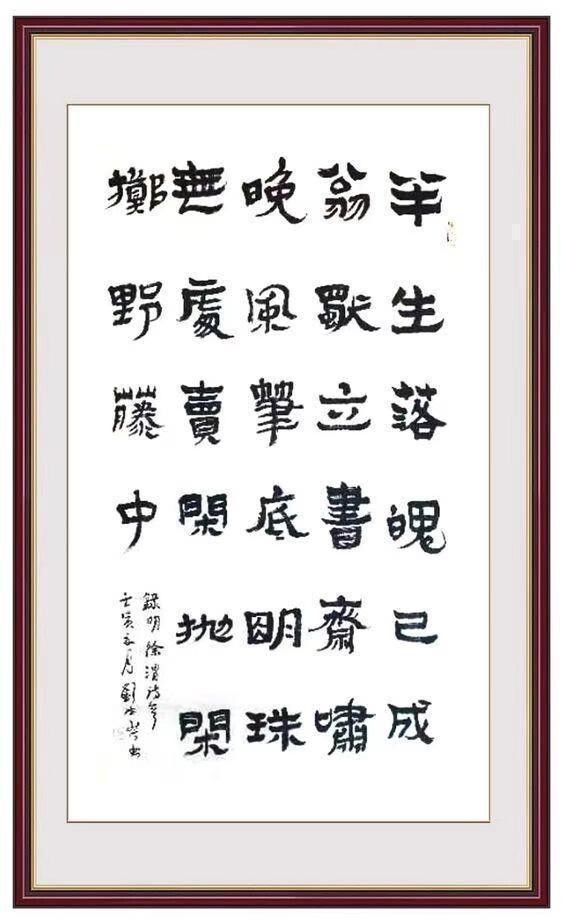 半生落魄已成
翁獨立書齋嘯
晚風筆底明珠
無處賣閑抛閑
擲野藤中
錄明徐渭詩
壬寅五月劉 書